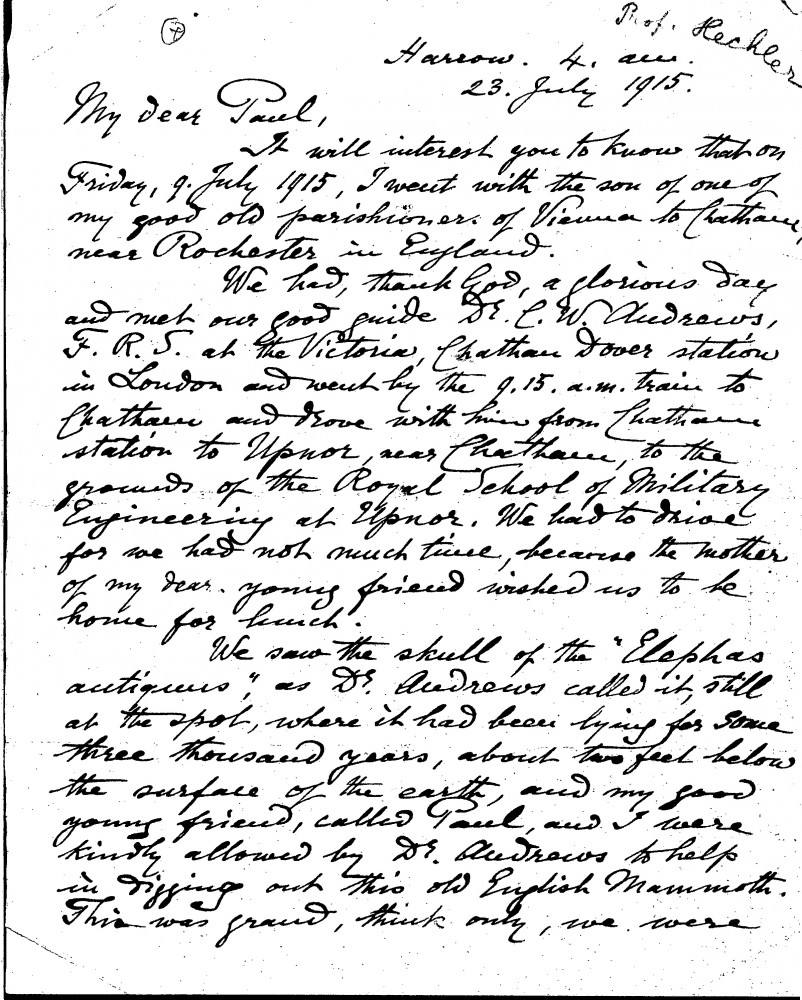 Prof. Hechler
Harrow. 4. am.
23. July 1915.
My dear Paul,
It will interest you to know that on
Friday, 9. July 1915, I went with the son of one of
my good old parishioners. of Vienna to Chatham,
near Rochester in England.
We had, thank God, a glorious day
and met our good guide Dr. C. W. Andrews,
F. R. S. at the Victoria, Chatham Dover station
in London and went by the 9.15. a.m. train to
Chatham and drove with him from Chatham
station to Upnor, near Chatham, to the
grounds of the Royal School of Military
Engineering at Upnor. We had to drive
for we had not much time, because the mother
of my dear. young friend wished us to be
home for lunch.
We saw the skull of the "Elephas
antiquus", as Dr. Andrews called it, still
at the spot, where it had been lying for some
three thousand years, about two feet below
the surface of the earth, and my good
young friend, called Paul, and I were
kindly allowed by Dr. Andrews to help
in digging out this old English Mammoth.
This was grand, think only, we were